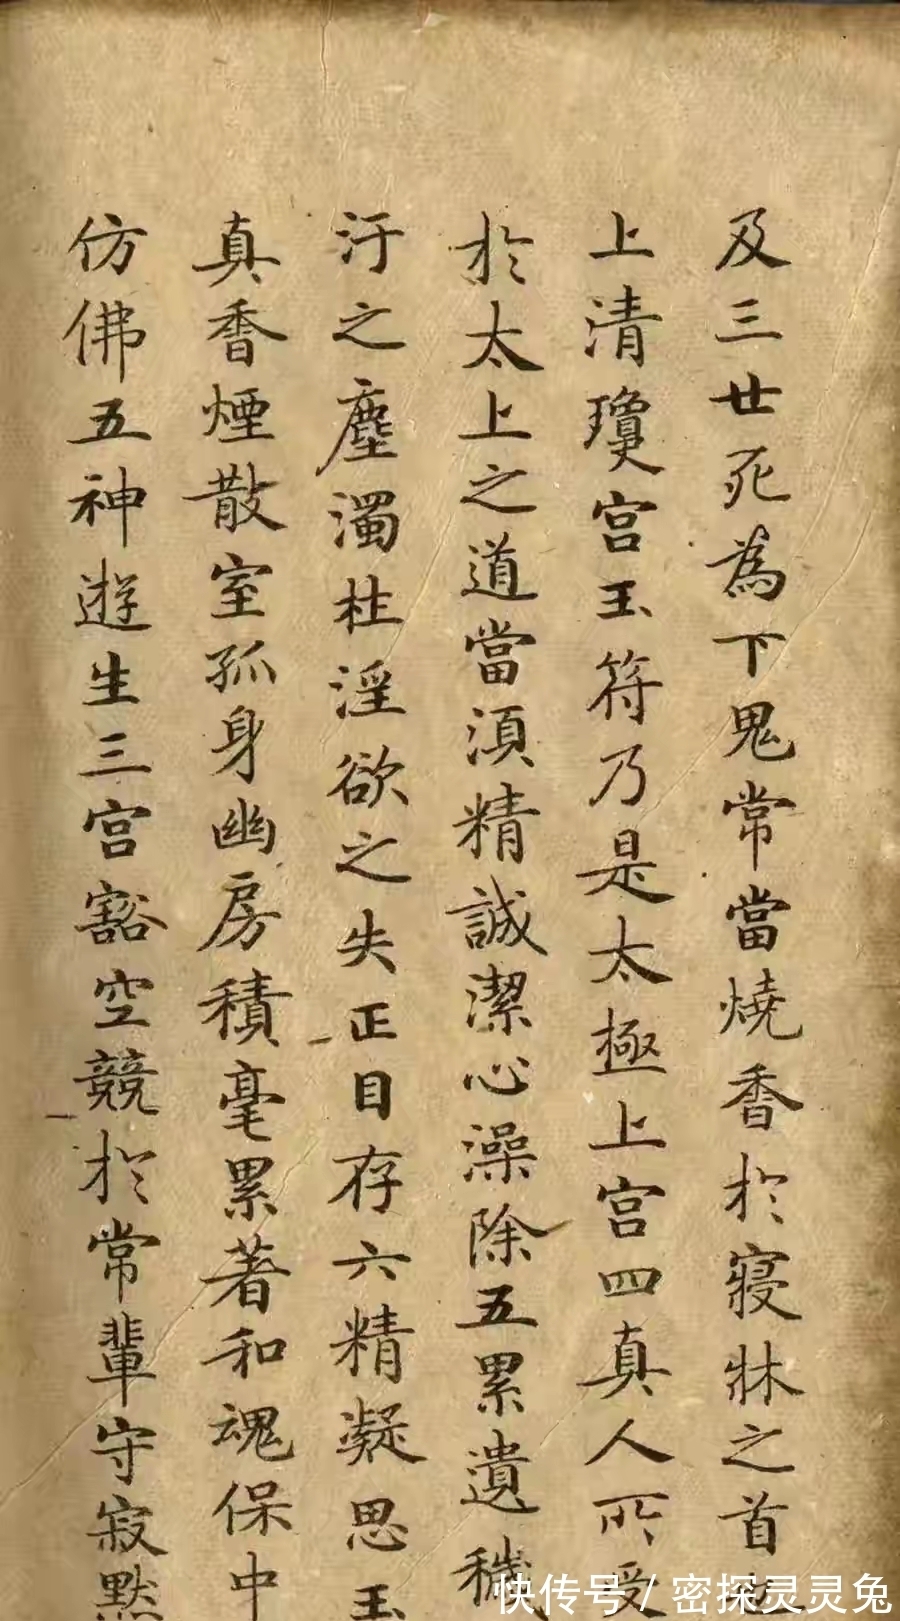 及三廿死為下鬼常當燒香於寢牀之首
上清瓊宮玉符乃是太極上宮四真人所受
於太上之道當湏精誠潔心澡除五累遺穢
汙之塵濁杜淫欲之失正目存六精凝思玉
真香煙散室孤身幽房積毫累著和魂保中
仿佛五神遊生三宮豁空競於常輩守寂默
快传号/密探灵灵兔